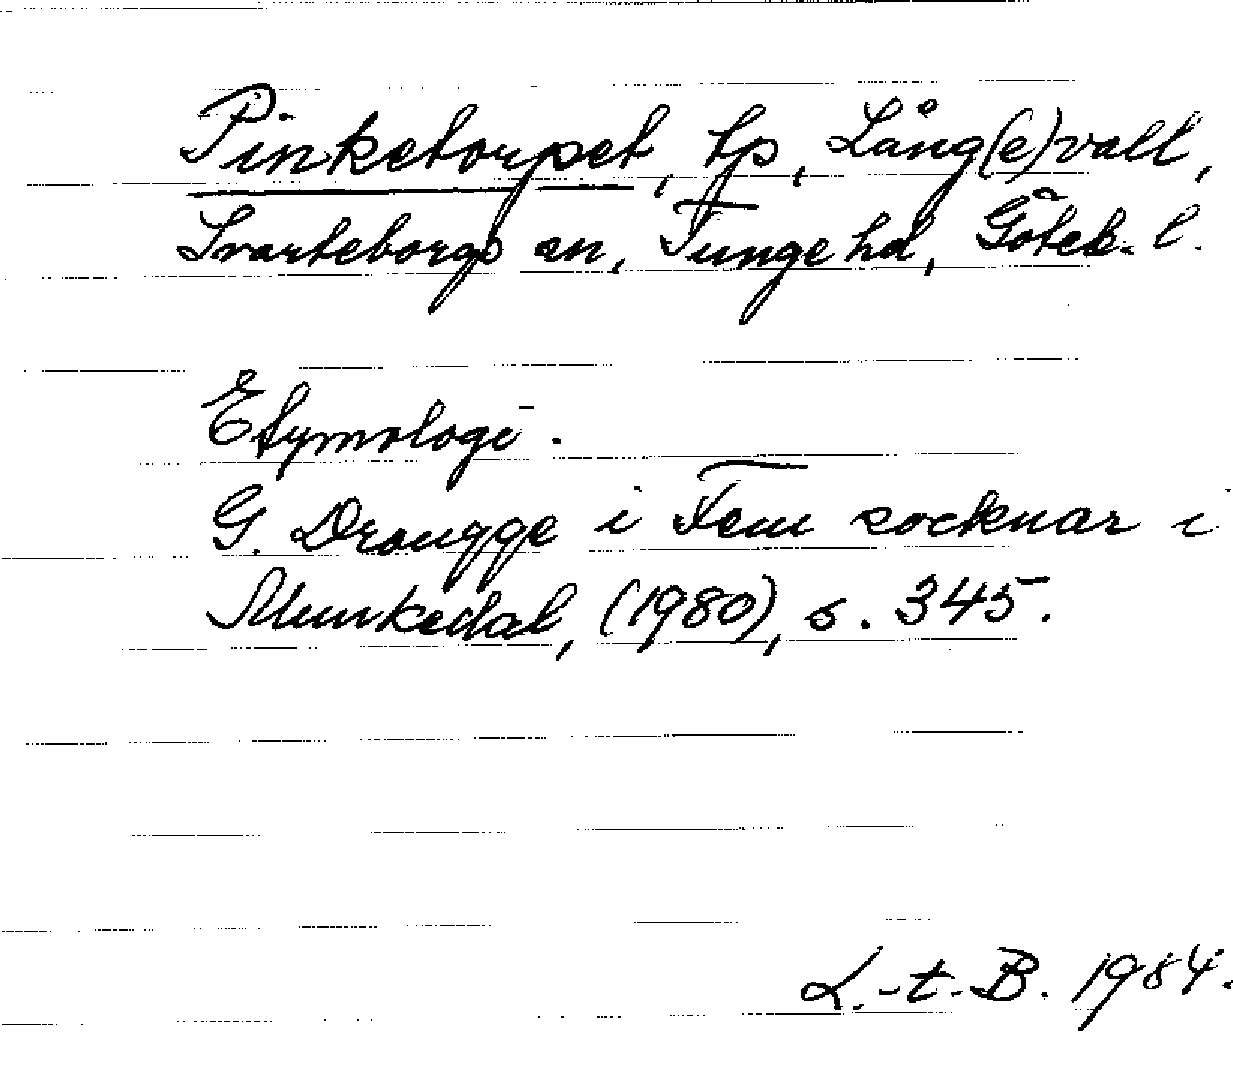 Pinketorpet, tp, Lång(e)vall,
Svarteborgs sn, Tunge hd, Göteb. l.
Etymologi.
G. Drougge i Fem socknar i
Munkedal, (1980), s. 345.
L.-t.-B. 1984.